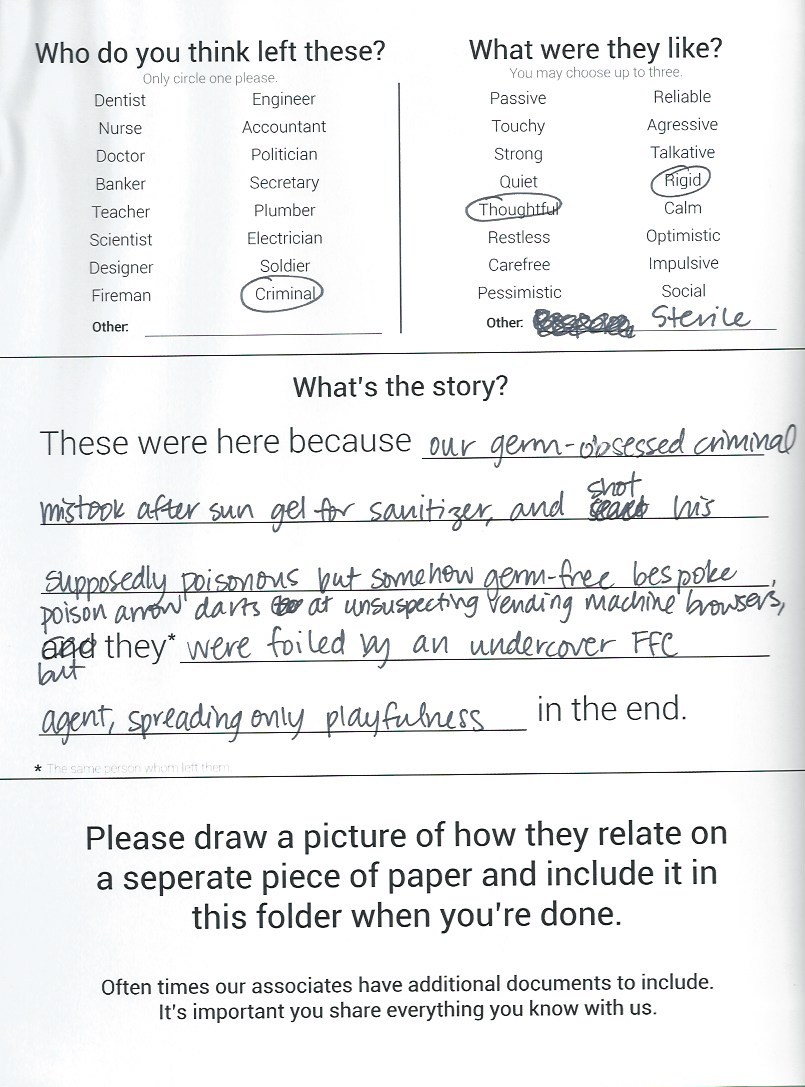 Who do you think left these?
Only circle one please.
Dentist Engineer
Nurse Accountant
Doctor Politician
Banker Secretary
Teacher Plumber
Scientist Electrician
Designer Soldier
Fireman Criminal
Other:
What were they like?
You may choose up to three.
Passive Reliable
Touchy Agressive
Strong Talkative
Quiet Rigid
Thoughtful Calm
Restless Optimistic
Carefree Impulsive
Pessimistic Social
Other: Sterile
What's the story?
These were here because our germ-obsessed criminal
mistook after sun gel for sanitizer, and shot his
supposedly poisonous but somehow germ-free bespoke
poison arrow darts at unsuspecting vending machine browsers,
and they* were foiled by an undercover FFC
but
agent, spreading only playfulness in the end.
* The same person whom left them.
Please draw a picture of how they relate on
a seperate piece of paper and include it in
this folder when you're done.
Often times our associates have additional documents to include.
It's important you share everything you know with us.